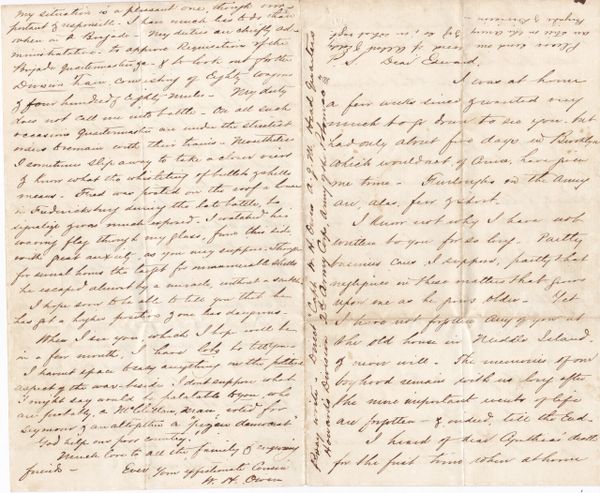 P.S. Dear Edward.
I was at home
a few weeks since & wanted very
much to go down to see you. but
had only about five days in Brooklyn
which would not, of course, have given
me time. Furloughs in the Army
are, alas, few & short.
I know not why I have not
written to you for so long. Partly
business cares I suppose, partly that
negligence in these matters that grows
upon one as he grows older. Yet
I have not forgotten any of you at
the old house in
& never will. The memories of our
boyhood remain with us long after
the more important events of life
are forgotten & indeed, till the End.
I heard of dear Cynthia's death
for the first time when at home
My situation is a pleasant one, though
portant & responsible. I have much less to do than
when in a Brigade. My duties are chiefly ad-
ministrative. to approve Requisitions of the
Brigade Quartermasters & to look out for the
Division Train, consisting of Eighty wagons
& four hundred & eighty mules. My duty
does not call me into battle. On all such
occasions Quartermasters are under the strictest
orders to remain with their trains. Nevertheless
I sometimes slip away to take a closer view
& know what the whistling of bullets & shells
means. Fred was posted on the roof of a house
in Fredericksburg during the late battle, his
signalizing much exposed. I watched his
waving flag through my glass, from this side
with great anxiety, as you may suppose. Though
for several hours the target for innumerable shells
he escaped almost by a miracle, without a scratch.
I hope soon to be able to tell you that he
has got a higher position & one less dangerous.
When I see you, which I hope will be
in a few months, I have lots to tell you.
I haven't space to say anything on the political
aspect of the war. Besides I don't suppose what
I might say would be palatable to you, who
are probably, a McClellan man, voted for
Seymour & are altogether a "
God help our poor country.
Much love to all the family & enquiring
friends. Ever Your affectionate Cousin
W. H. Owen
Please send me
some of
Pray write. Direct Capt. W. H. Owen A.Q.M. Head Quarters
Howard's Division 2d Army Corps, Army of the Potomac